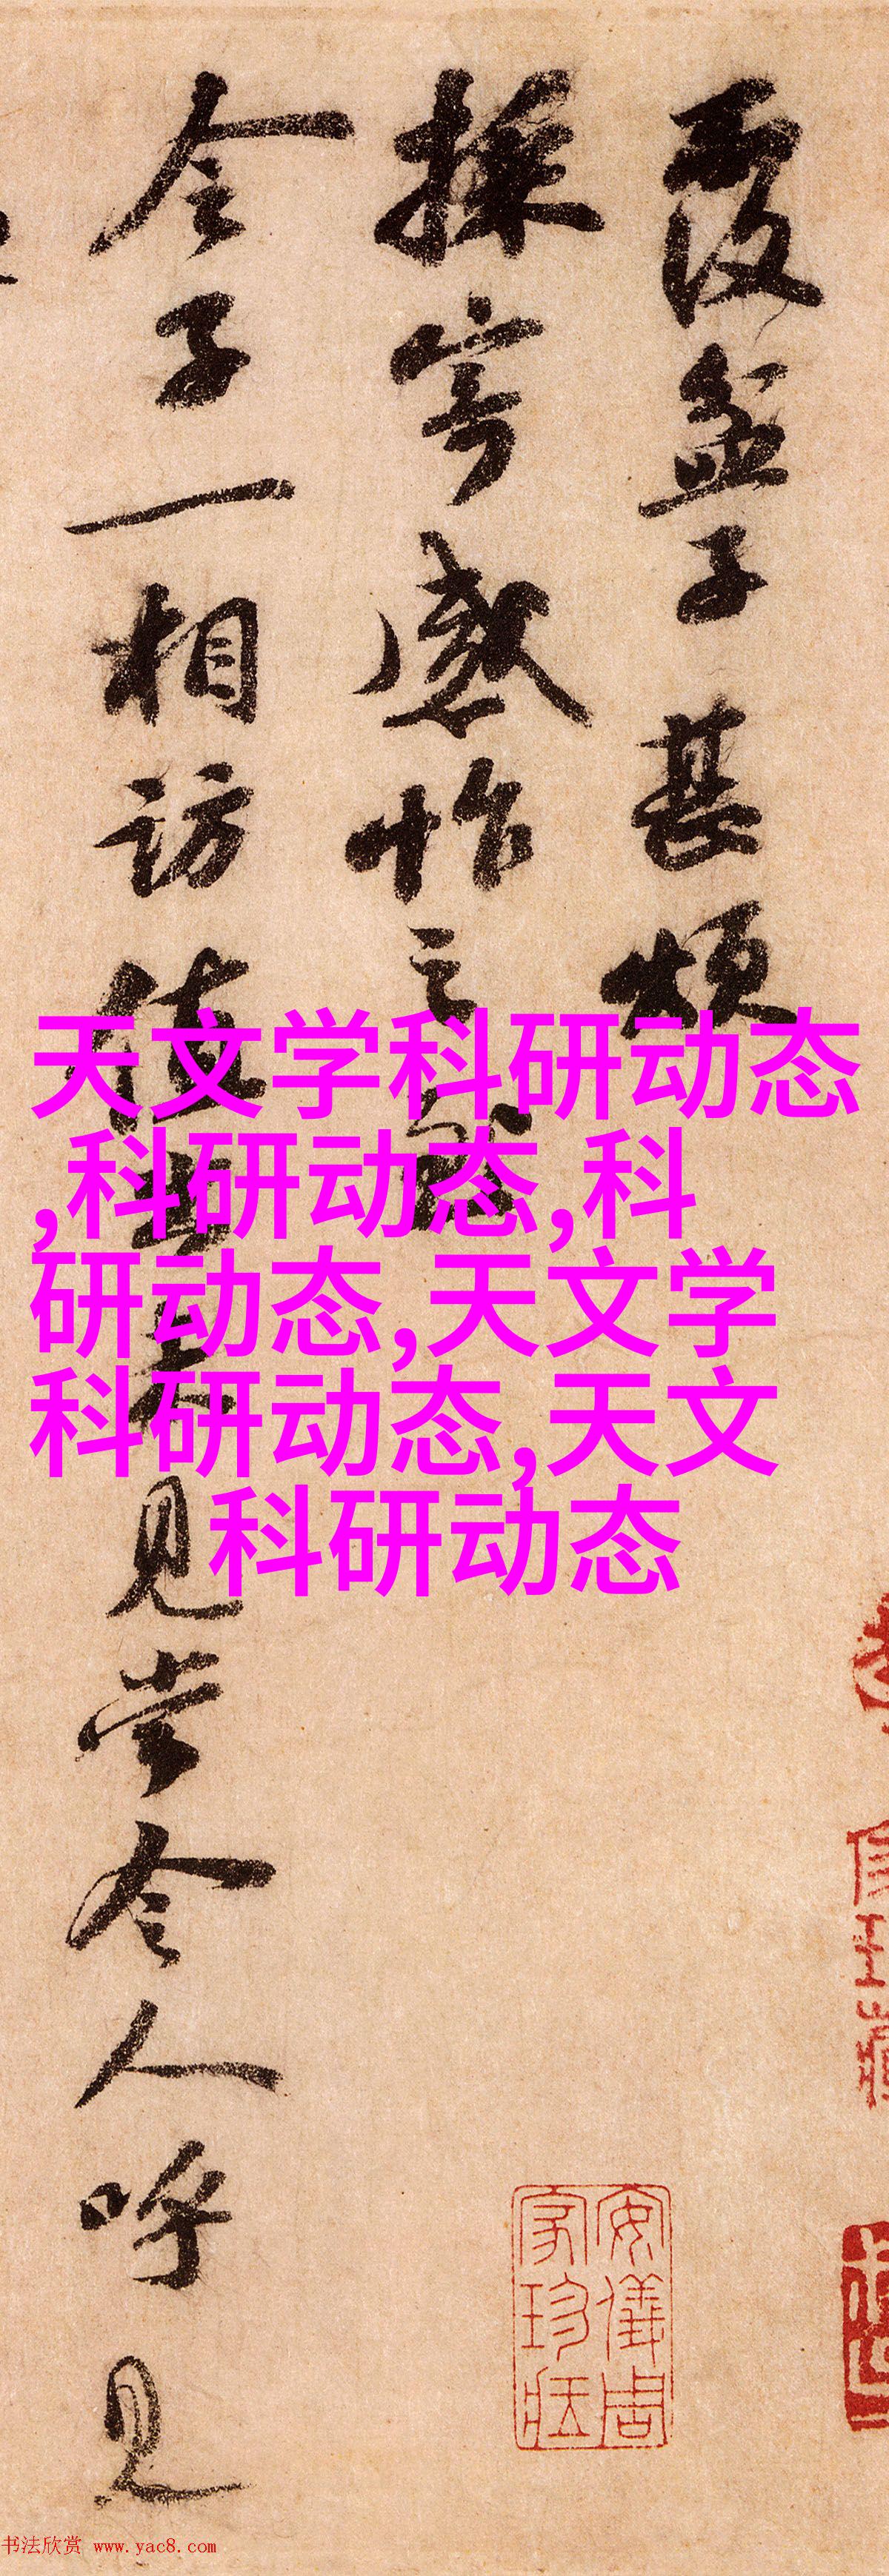 覆盆子甚烦
采寄感怍之
令子一相访值
见尝令人呼见
天文学科研动态
,科研动态,科
研动态,天文学
科研动态,天文
科研动态
安儀周
家珍藏
书法欣赏 www.yac8.com